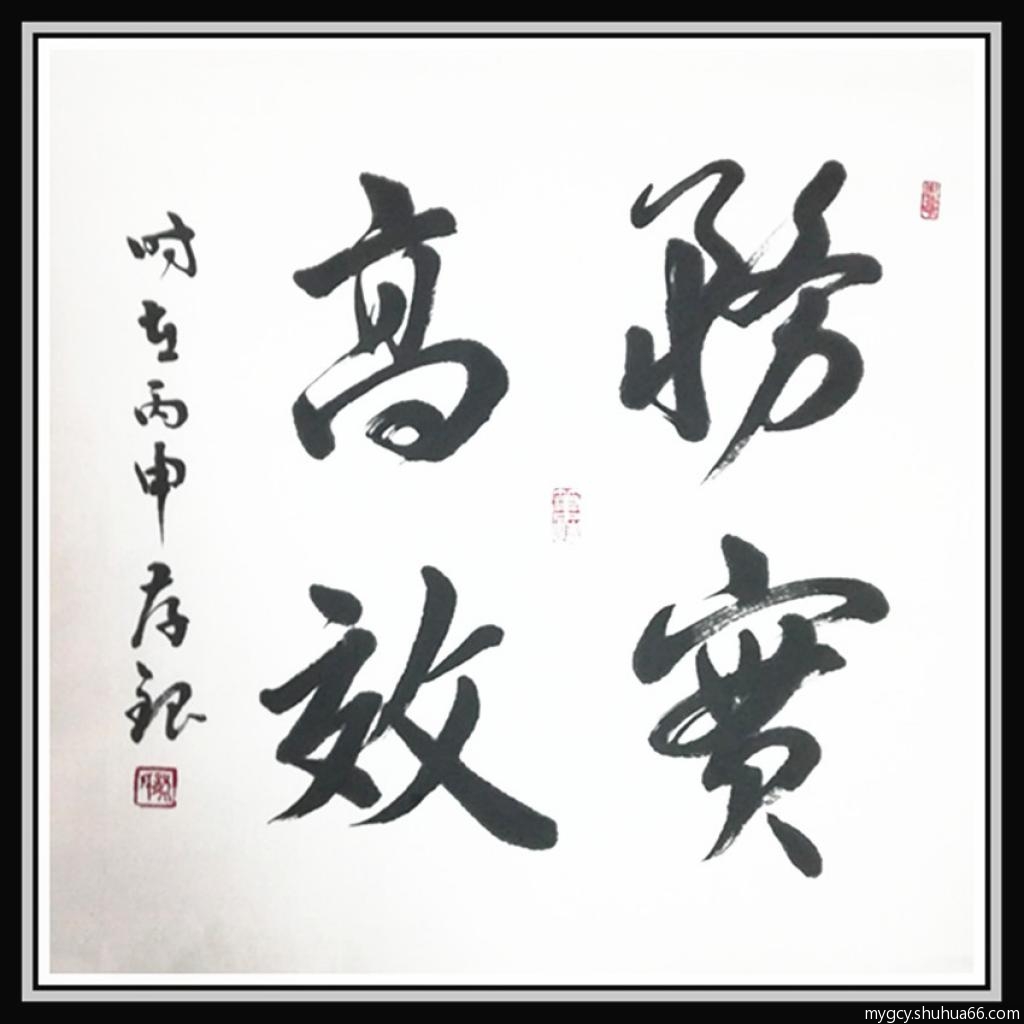 務實
高效
時在丙申存銀
mygcy.shuhua66.com